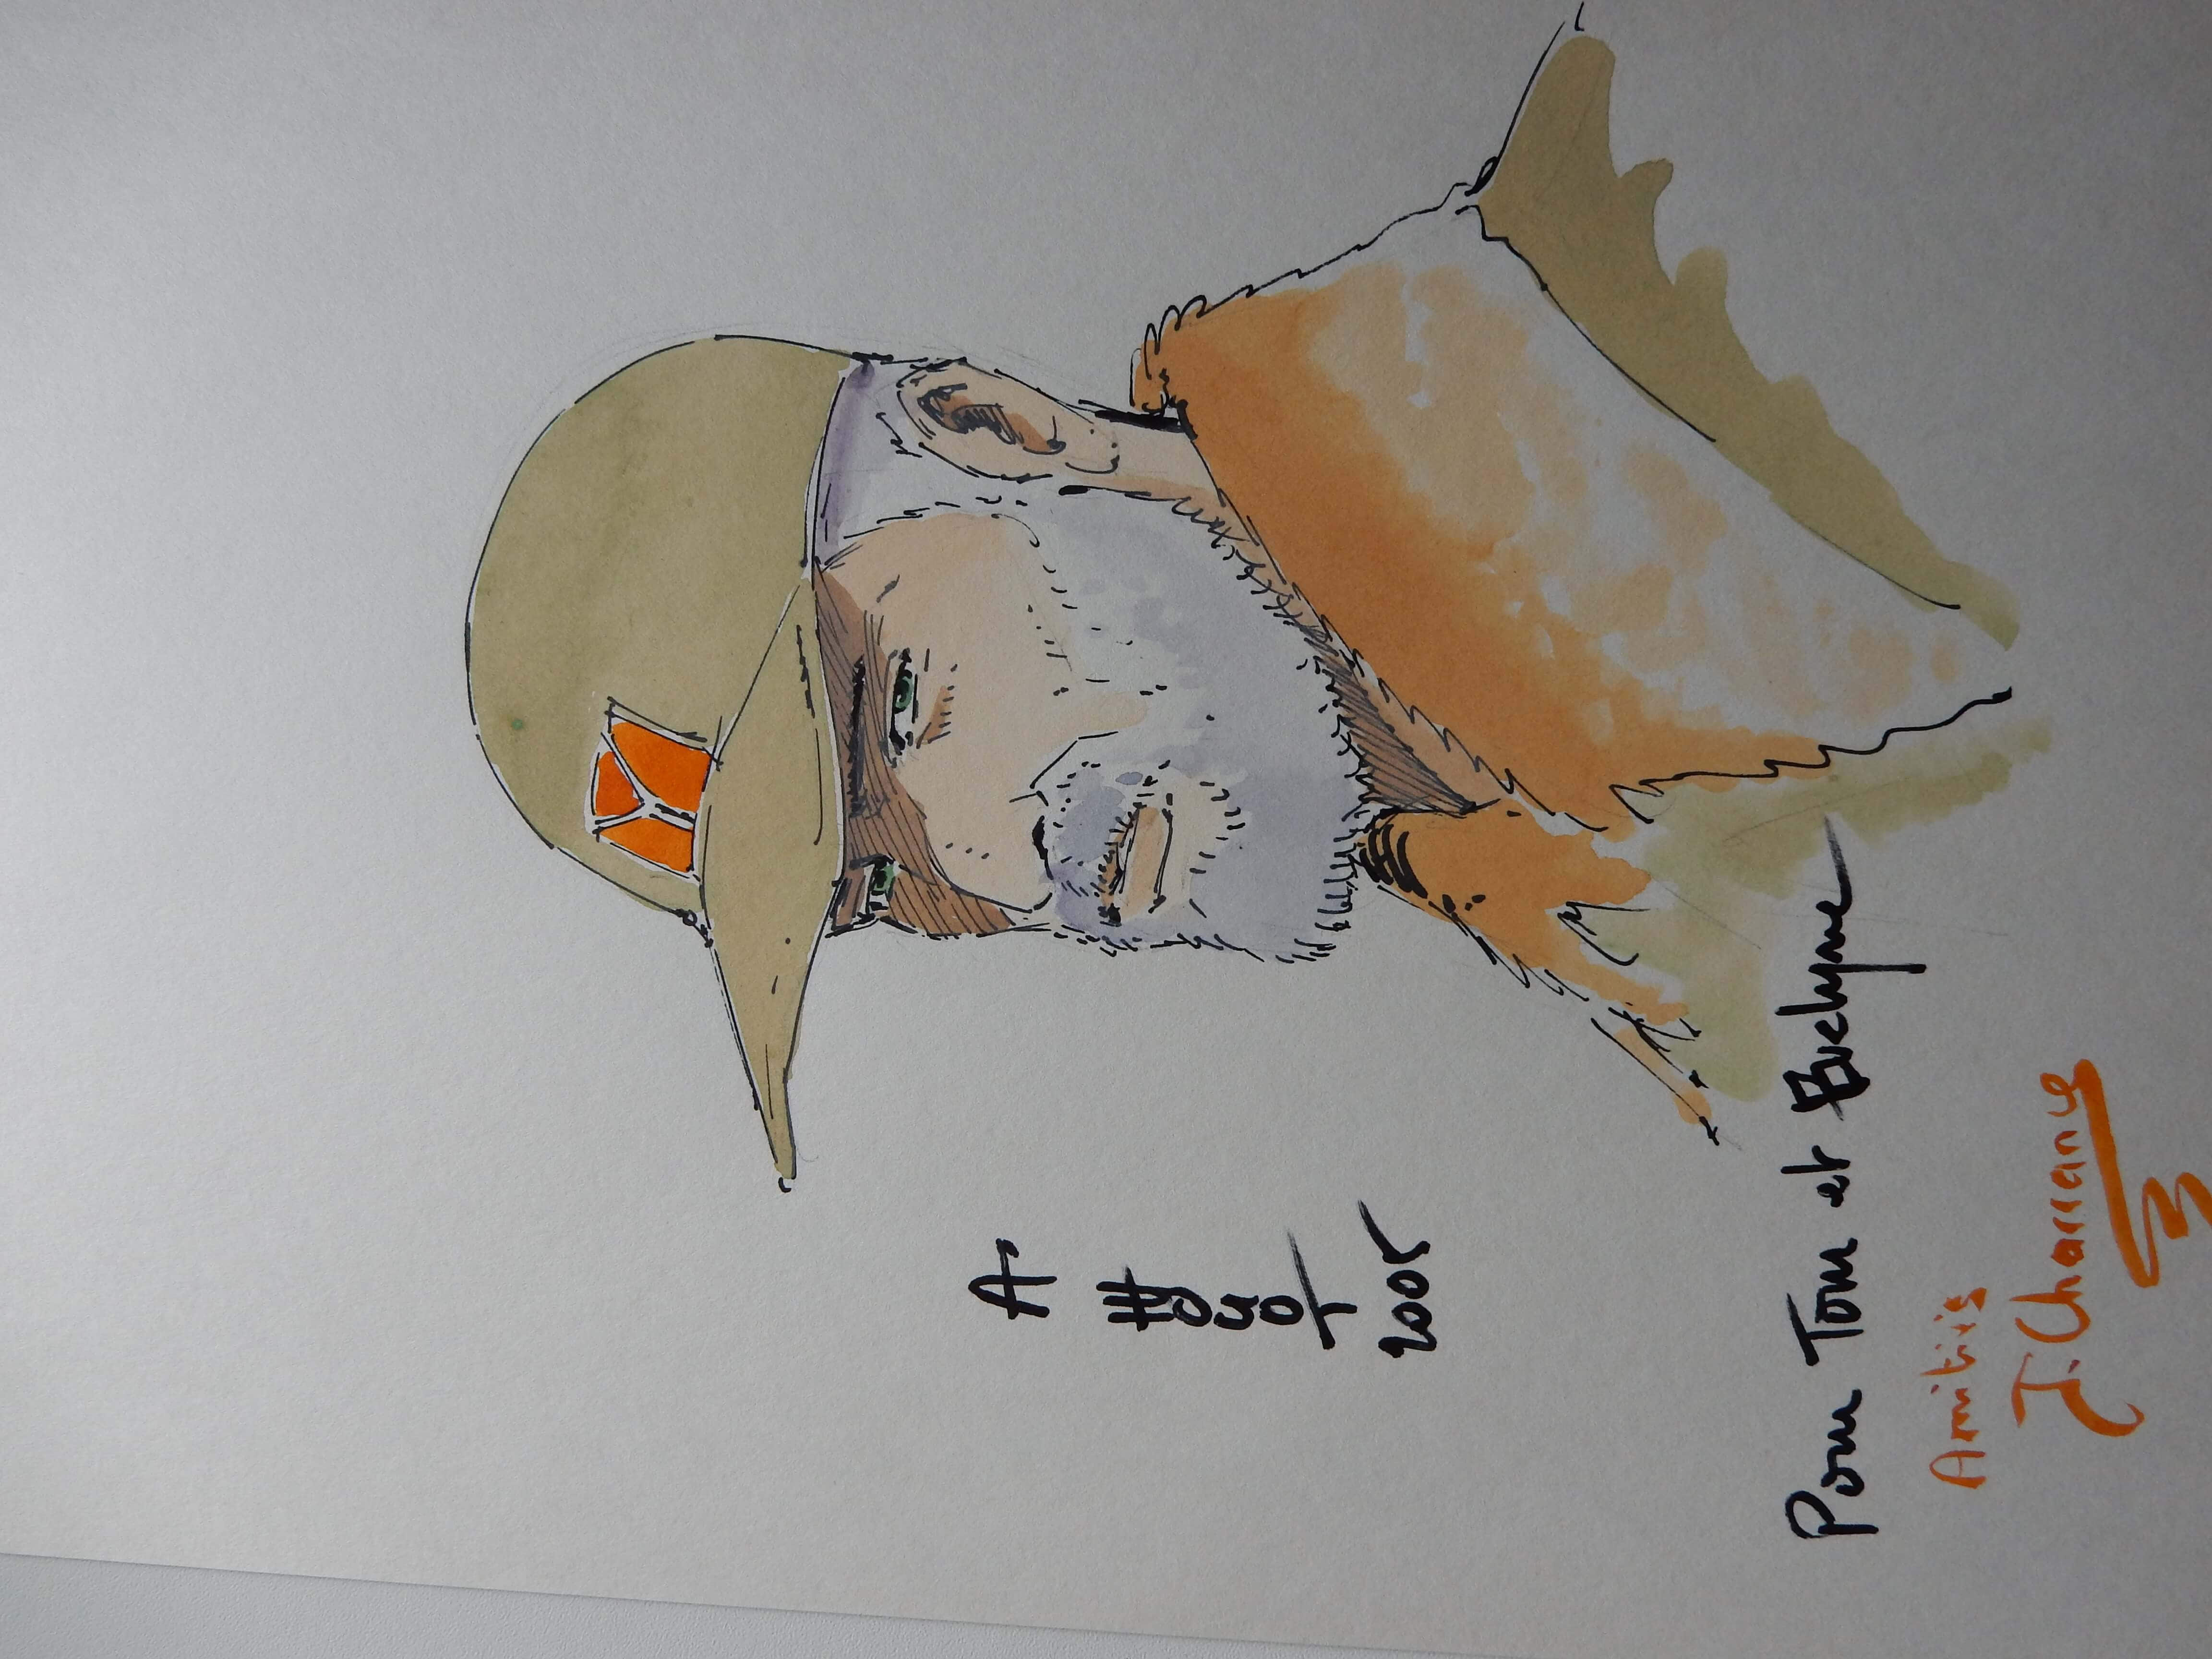 A HOUOT
2005
Pour Tom et Evelyne
Amitiés
J. Charrance